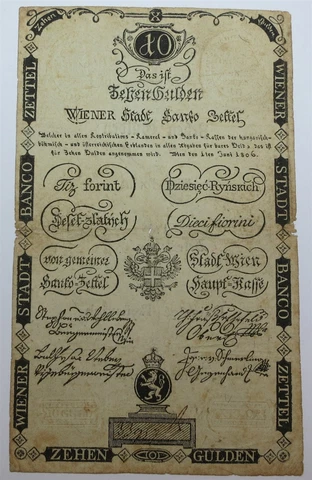 Zehen
Gulden
10
Das ist
Zehen Gulden
WIENER Stadt Banko Zettel
Welcher in allen Kontributions- Kameral- und Banko-Kassen der hungarisch-
böhmisch- und österreichischen Erblanden in allen Abgaben für baares Geld, das ist
für Zehen Gulden angenommen wird. Wien den 1ten Juni 1806.
Tiz forint
Dziesięć Ryńskich
Deset zlatych
Dieci fiorini
von gemeiner
Stadt Wien
Banko Zettel
Haupt-Kasse
WIENER STADT BANCO ZETTEL
WIENER STADT BANCO ZETTEL
ZEHEN
GULDEN